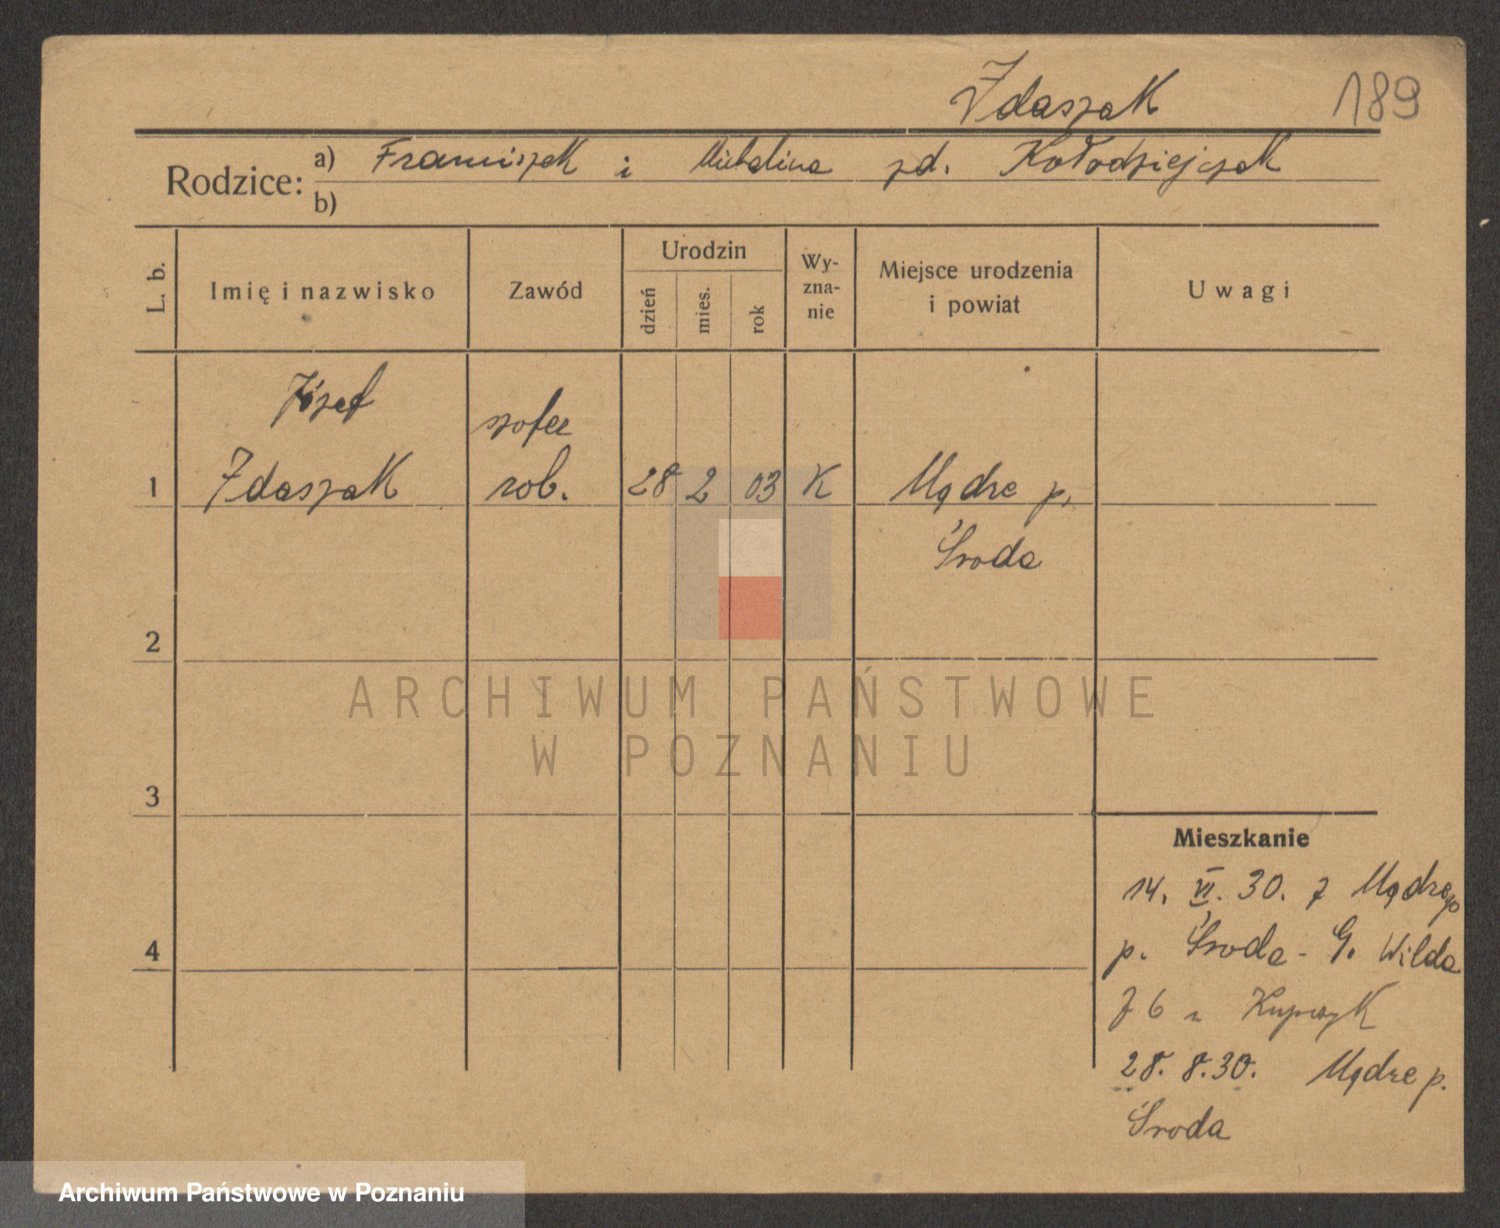 Zdaszak 189
Rodzice: a) Franciszek i Michalina zd. Kołodziejczak
b)
L. b. Imię i nazwisko Zawód Urodzin dzień mies. rok Wy-zna-nie Miejsce urodzenia i powiat Uwagi
Józef
szofer
1 Zdaszak rob. 28 2 03 K Mądre p.
Środa
2
ARCHIWUM PAŃSTWOWE
W POZNANIU
3
Mieszkanie
14. VI. 30. z Mądrego
4 p. Środa - G. Wilda
76 u Kupczyk
28. 8. 30. Mądre p.
Środa
Archiwum Państwowe w Poznaniu